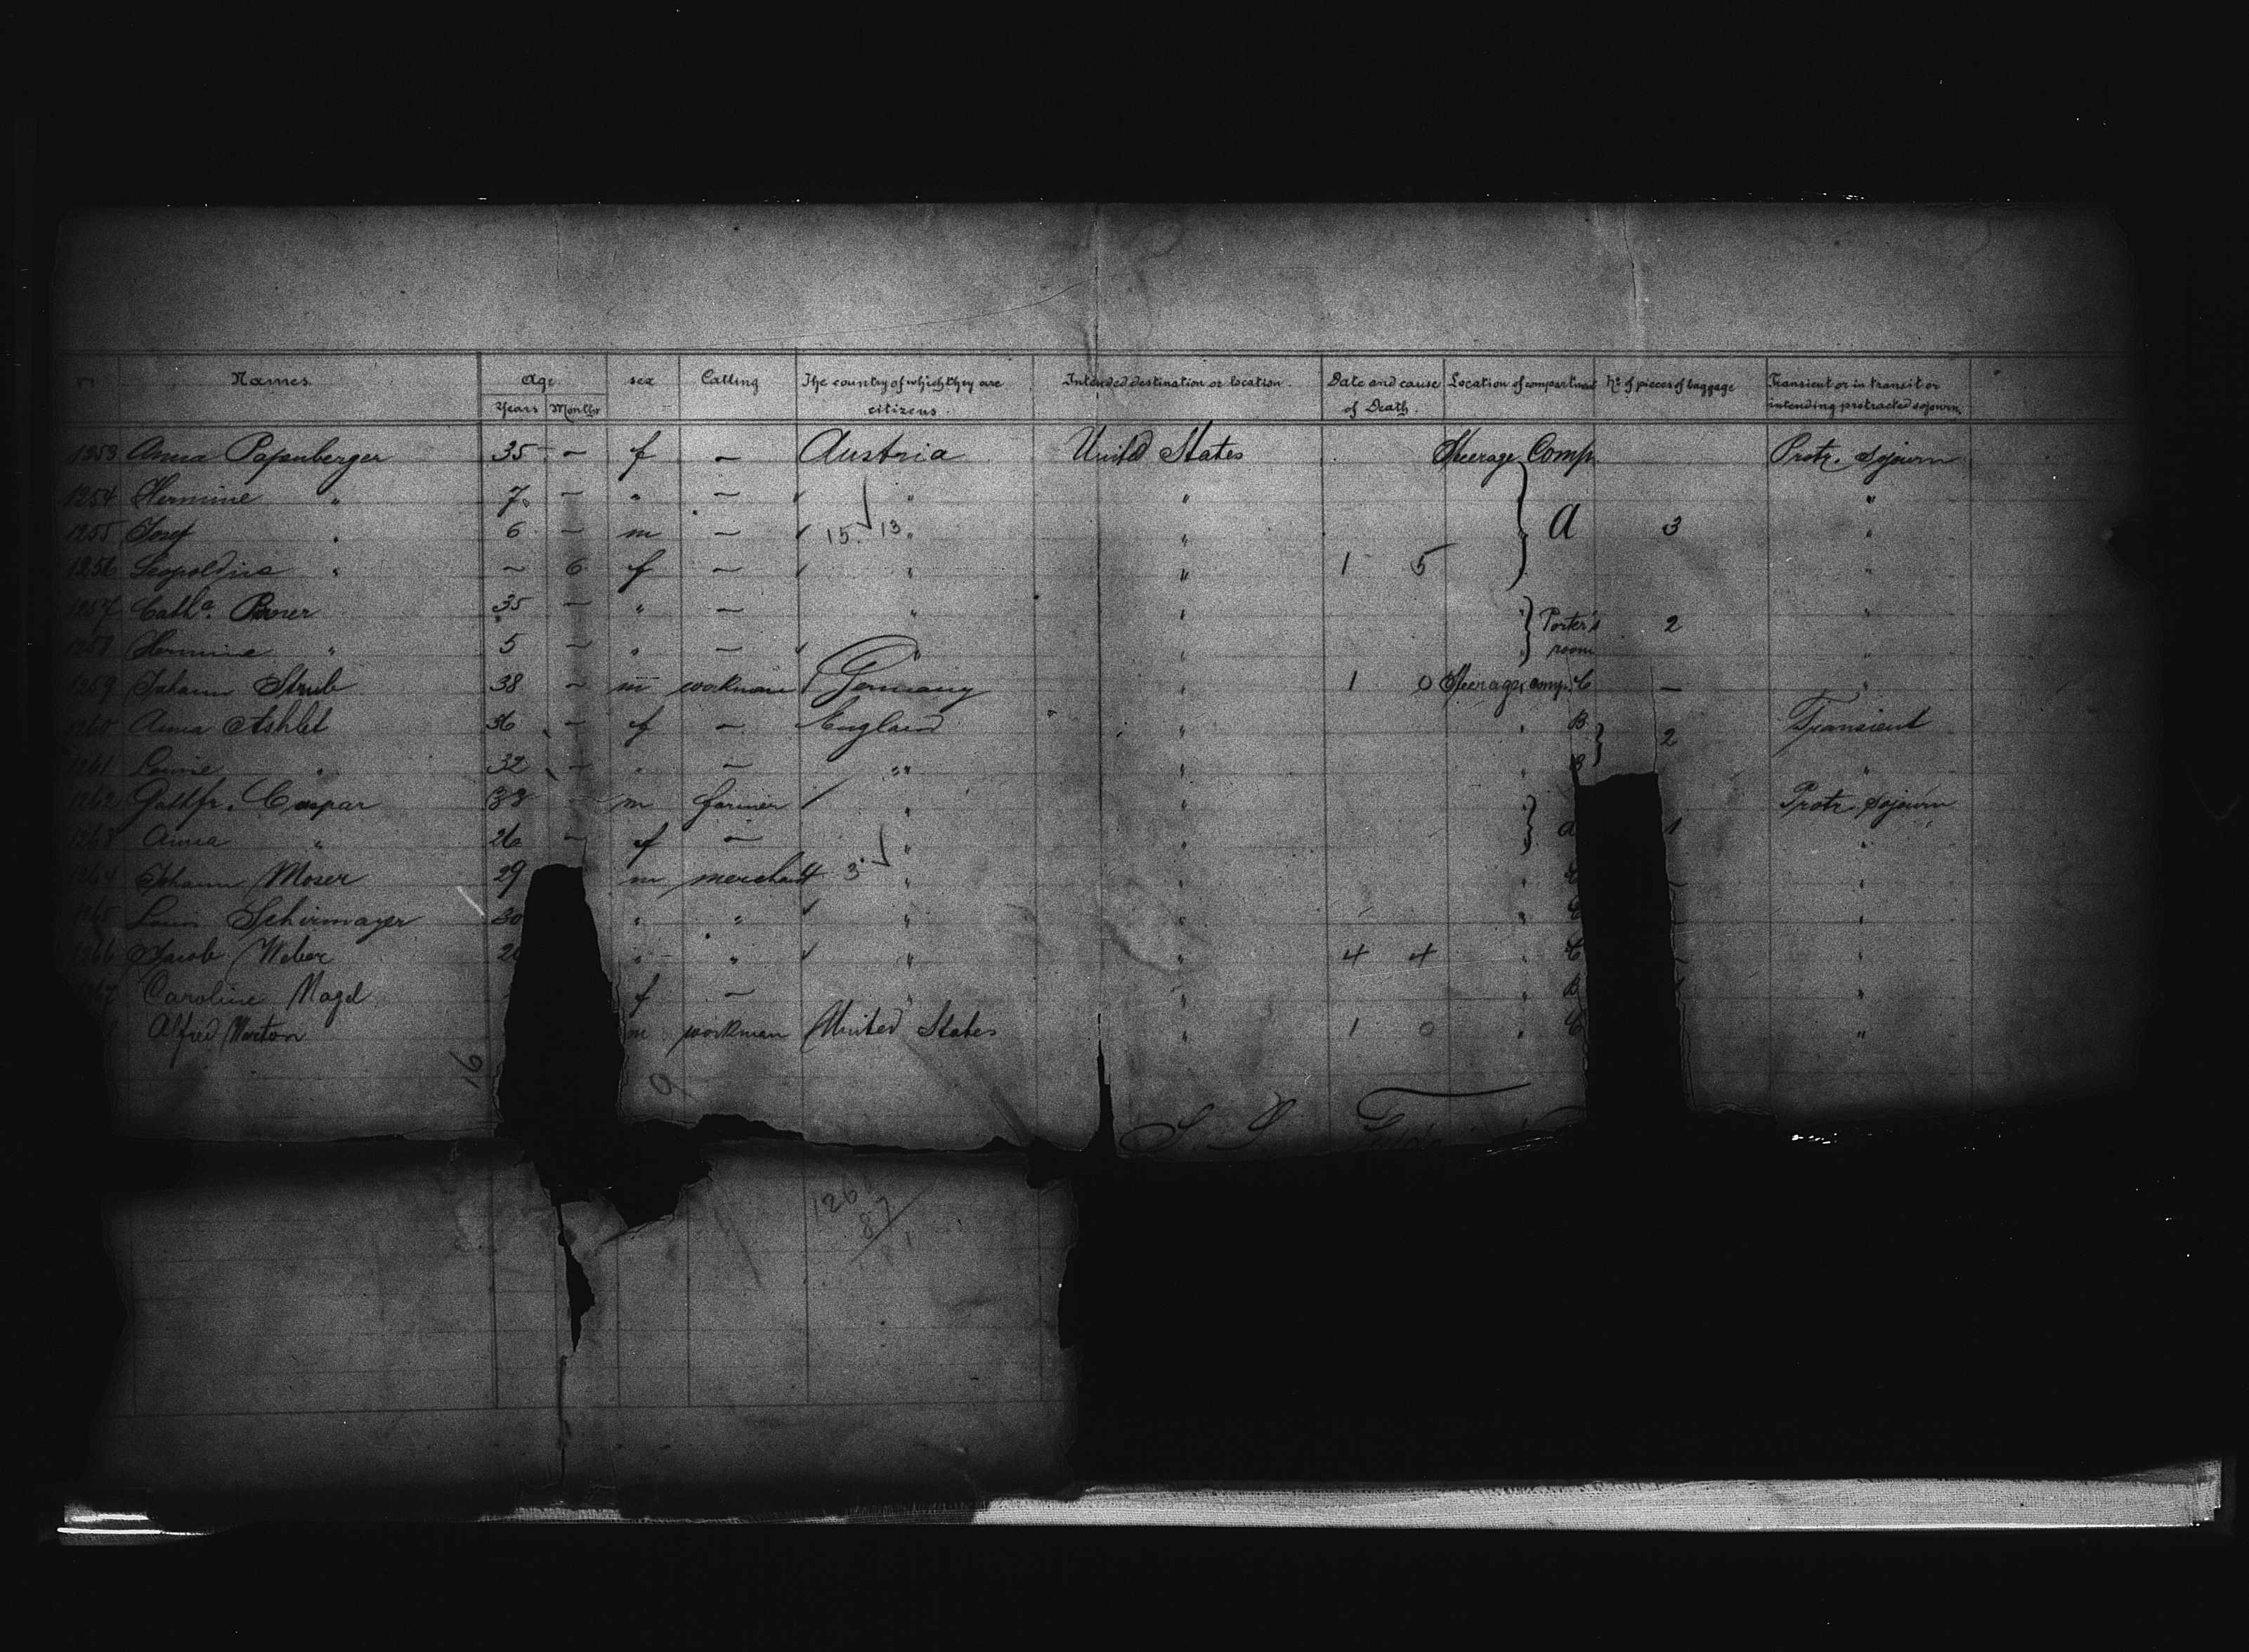 Names. Age sex Calling The country of which they are citizens. Intended destination or location. Date and cause of Death. Location of compartment No. of pieces of baggage Transient or in transit or intending protracted sojourn.
Years Months
1253 Anna Papenberger 35 - f - Austria United States Steerage Comp. Protr. Sojourn
1254 Hermine " 7 - " - " " "
1255 Josef " 6 - m - 15. 13 " " } a 3 "
1256 Leopoldine " - 6 f - " " 1 5 "
1257 Cath.a 35 - " - " " } Porter's room 2 "
1258 Hermine " 5 - " - " " "
1259 Johann Strub 38 - m workman Germany " 1 0 Steerage comp. C - "
1260 Anna Ashlet 36 - f - England " " B } 2 Transient
1261 " 32 - " - " " " B "
1262 Gotthfr. Caspar 33 - m farmer " " } Protr. Sojourn
1263 Anna " 26 - f - " " a 1 "
1264 Johann Moser 29 m merchant 3 " " " "
1265 Louis Schirmayer 30 " " " " " "
1266 Jacob Weber " " " " 4 4 " C "
Caroline Nagel f - " " " B "
Alfred Morton m workman United States " 1 0 " C "
16 9
S. S. Fulda
126
87
81